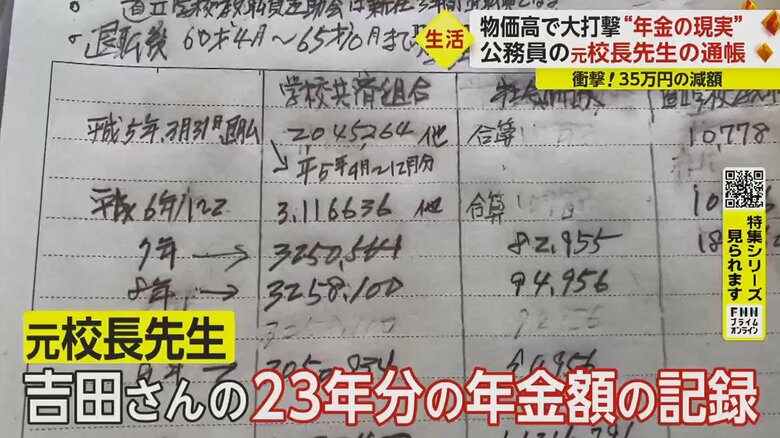 物価高で大打撃“年金の現実”
生活
公務員の元校長先生の通帳
衝撃！35万円の減額
退転後 60才4月〜65才0月まで
学校共済組合
平成5年、3月31日退転
2045264 他
合算
10,778
平5年4月〜12月分
平成6年/122
3,116636 他
合算
7年 →
3250,564
82,955
8年 →
3258,100
94,956
特集シリーズ
見られます
FNN
プライム
オンライン
元校長先生
吉田さんの23年分の年金額の記録